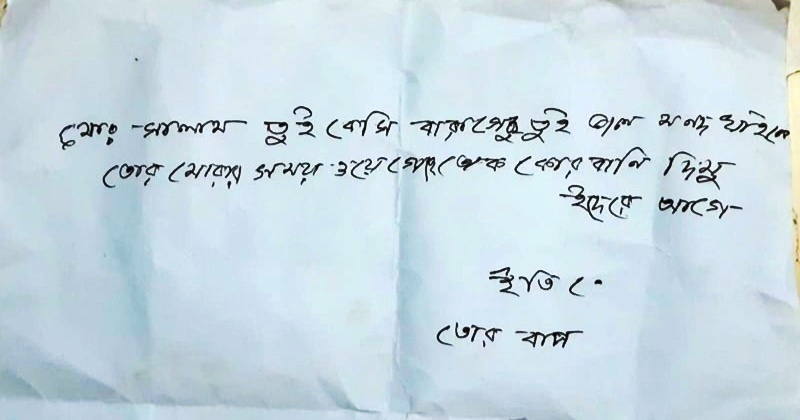 মোঃ সালাম তুই বেসি বারাগেছু তুই ভাল মনদ খাইলে
তোর মোরার সময় ওয়ে গেছে তোক কোরবানি দিমু
ইদেরে আগে-
ইতি
তোর বাপ